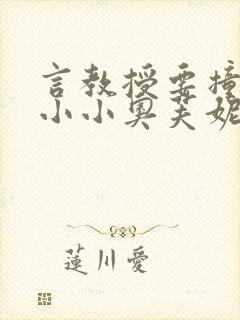 言教授要撞
小小奥芙妮
蓮川愛